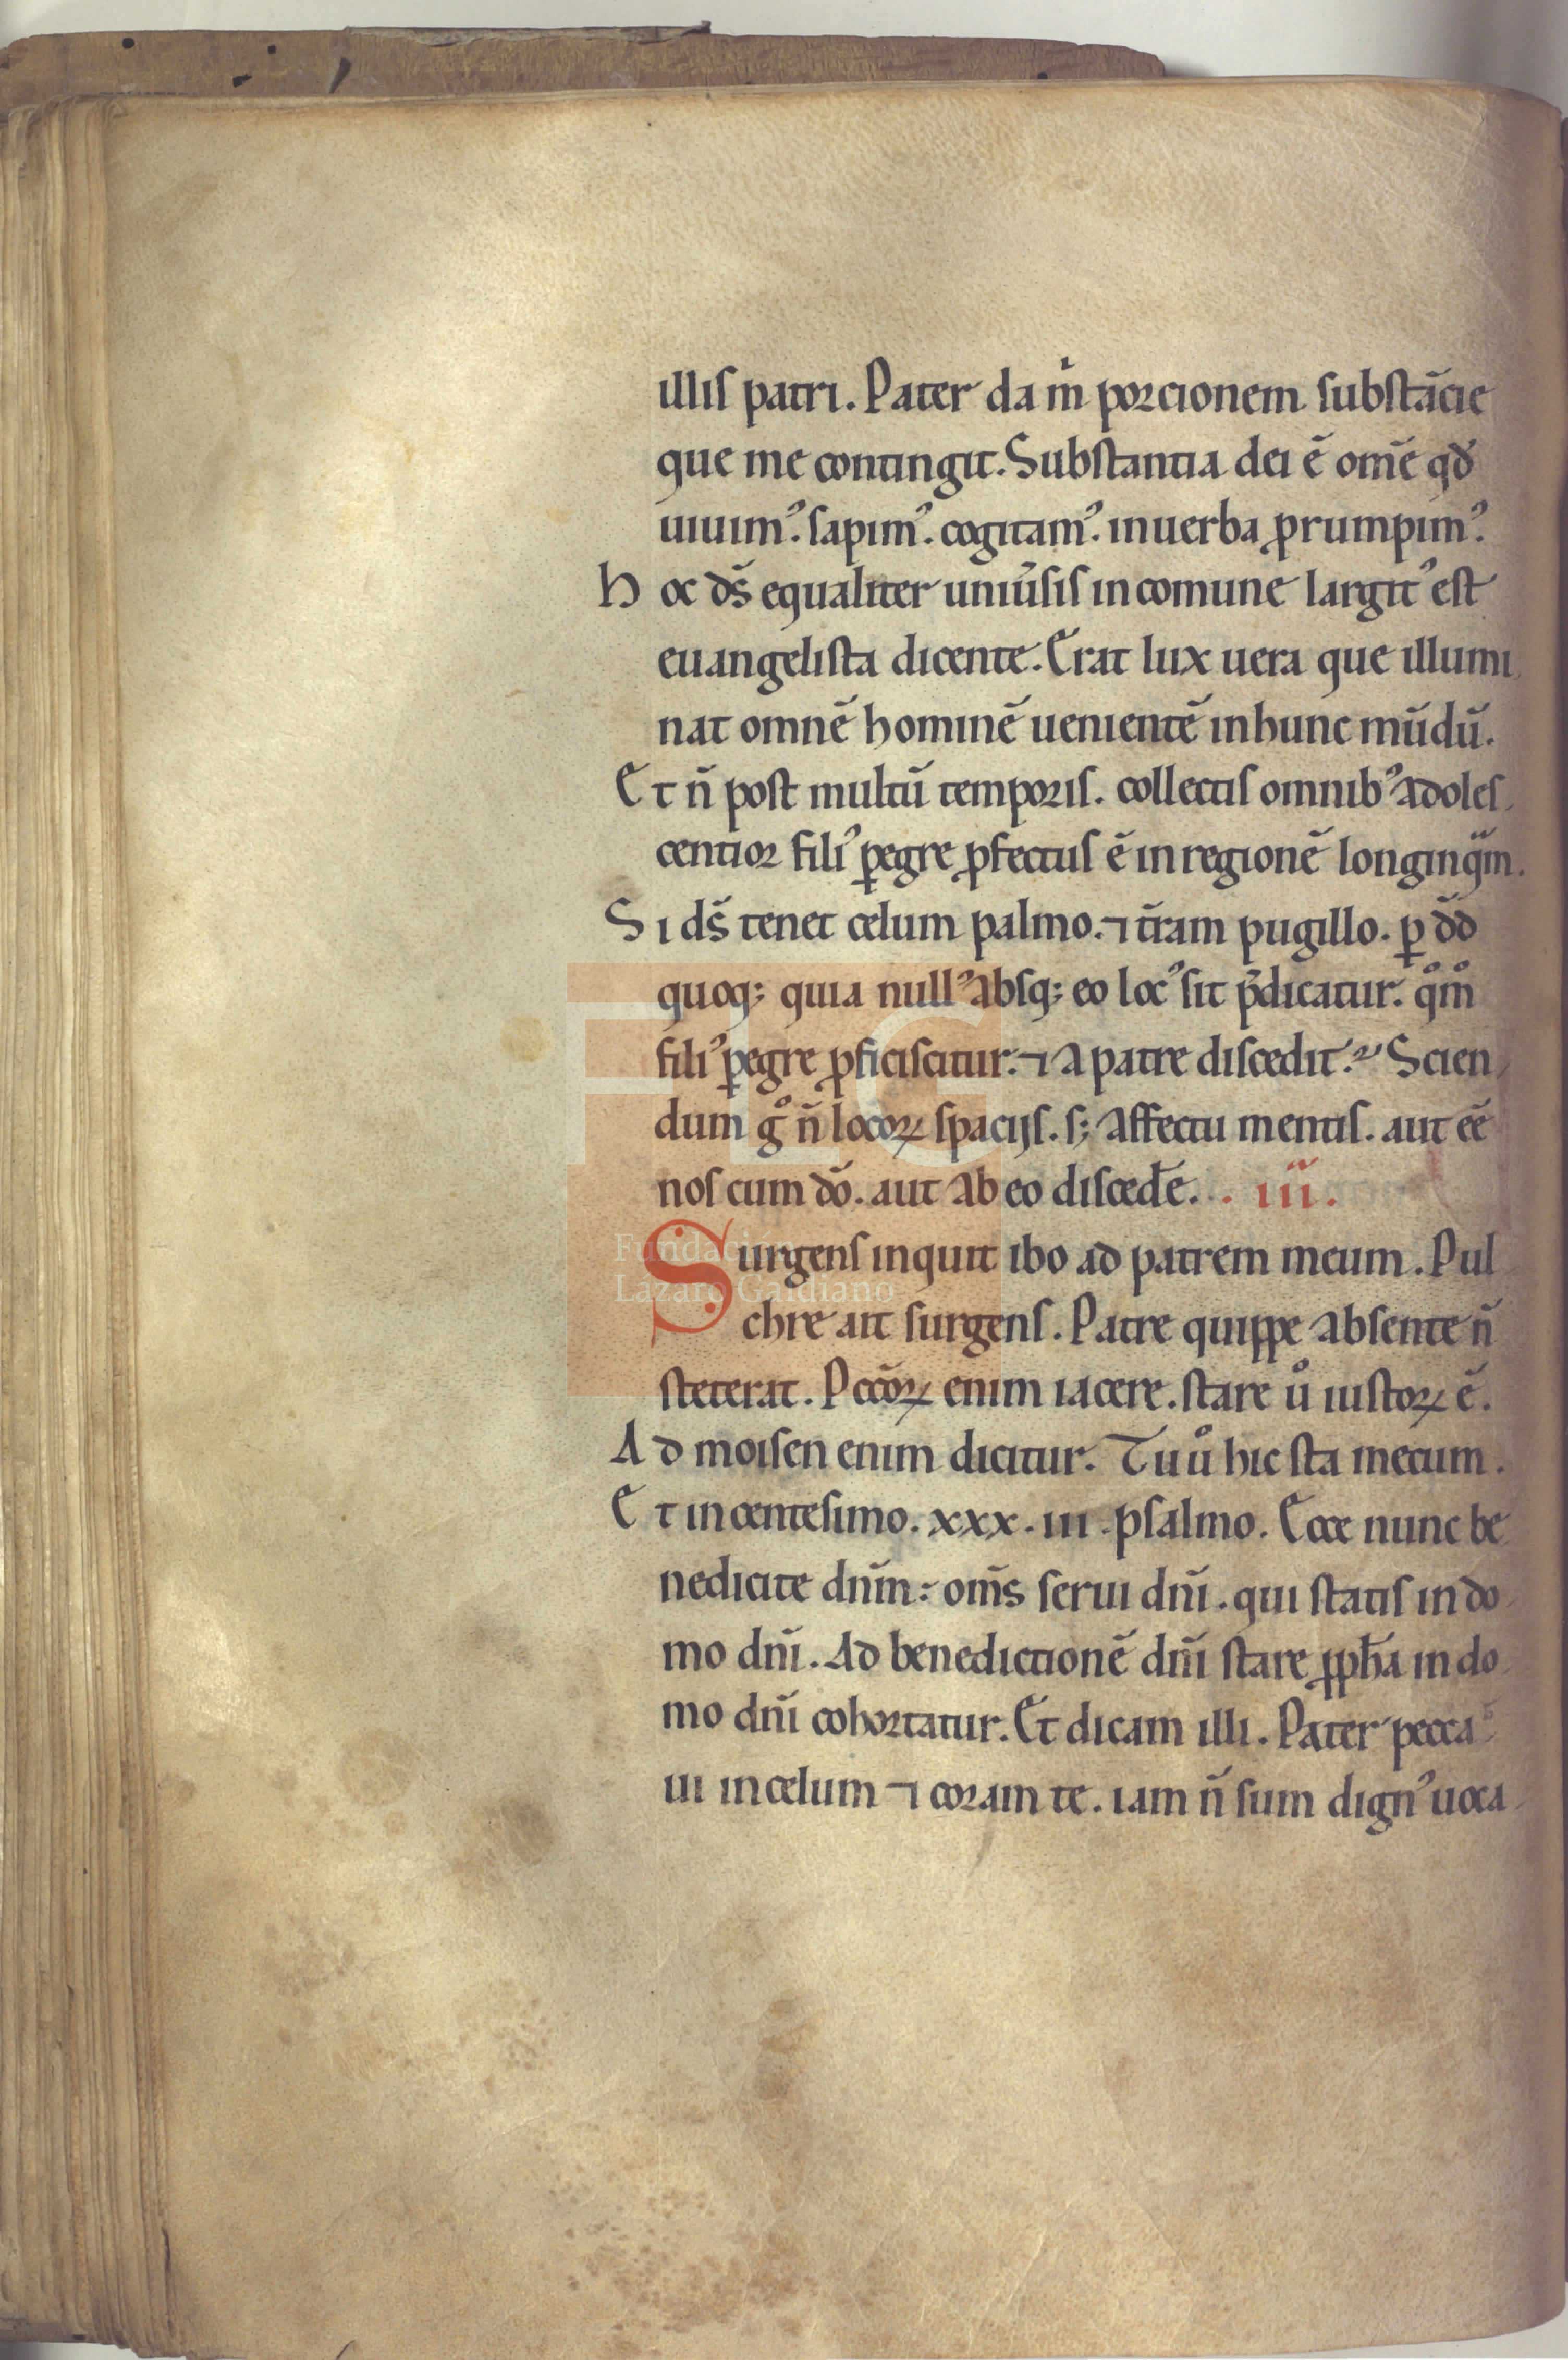 illis patri. Pater da m̊ porcionem substācie
que me contingit. Substantia dei ē om̄e qd̓
uiuim᾽. sapim᾽. cogitam᾽. in uerba ꝓrumpim᾽.
Hoc ds̄ equaliter uniūsis in comune largit᾽ est
euangelista dicente. Erat lux uera que illumi
nat omnē hominē uenientē in hunc mūdū.
Et n̄ post multū temporis. collectis omnib᾽ adoles
centior fili᾽ ꝑegre ꝓfectus ē in regionē longinqͣm.
Si ds̄ tenet celum palmo. ⁊ t̄ram pugillo. ꝑ dd̄
quoq; quia null᾽ absq; eo loc᾽ sit p̄dicatur. qͦm̊
fili᾽ ꝑegre ꝓficiscitur. ⁊ a patre discedit. Scien
dum gͦ n̄ locoꝝ spacijs. s; affectu mentis. aut eē
nos cum dō. aut ab eo disced̄e. . iii.
Surgens inquit ibo ad patrem meum. Pul
chre ait surgens. Patre quippe absente n̄
steterat. Pccōꝝ enim iacere. stare uͦ iustoꝝ ē.
Ad moisen enim dicitur. Tu uͦ hic sta mecum.
Et in centesimo. xxx. iii. psalmo. Ecce nunc be
nedicite dnm̄: om̄s serui dnī. qui statis in do
mo dnī. Ad benedictionē dnī stare ꝓph̄a in do
mo dnī cohortatur. Et dicam illi. Pater pecca
ui in celum ⁊ coram te. iam n̄ sum dign᾽ uoca
FLG
Fundación
Lázaro Galdiano